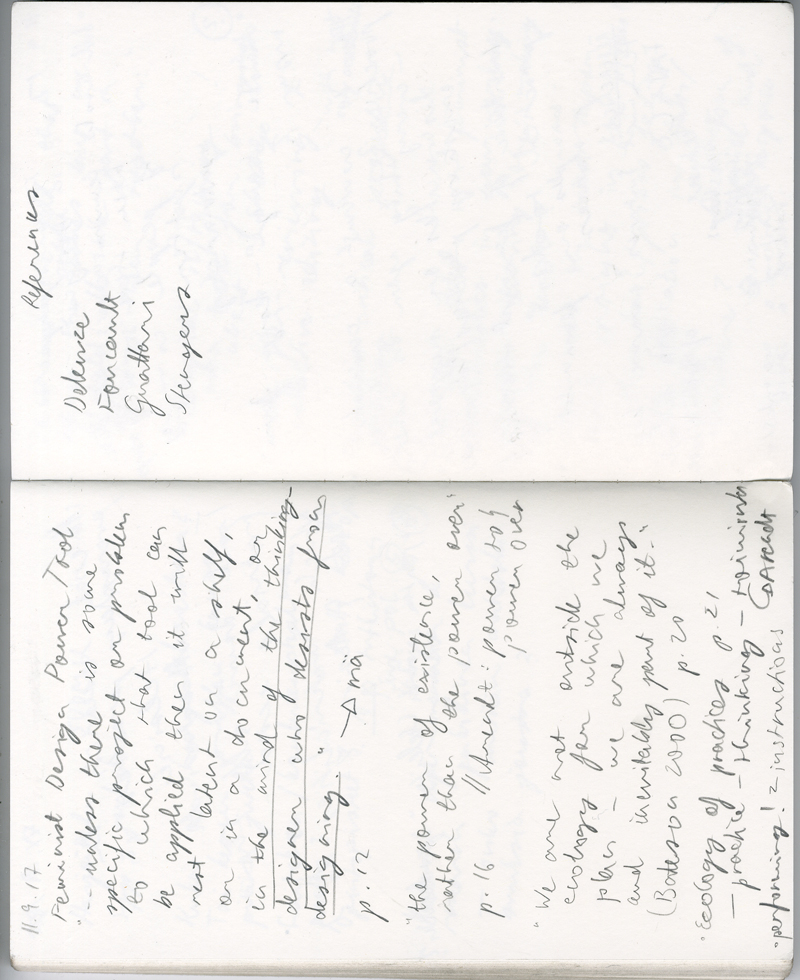 11.9.17
Feminist Design Power Tool
"-- unless there is some
specific project or problem
to which that tool can
be applied then it will
rest latent on a shelf,
or in a document, or
in the mind of the thinking-
designer who desists from
designing."
p. 12
"the power of existence,
rather than the power over"
p. 16 // Arendt: power to
power over
"We are not outside the
ecology for which we
plan – we are always
and inevitably part of it."
(Bateson 2000) p. 20
"Ecology of practices p. 21
– practice – thinking – 
Arendt
"performing! = instructions
References
Deleuze
Foucault
Guattari
Stengers